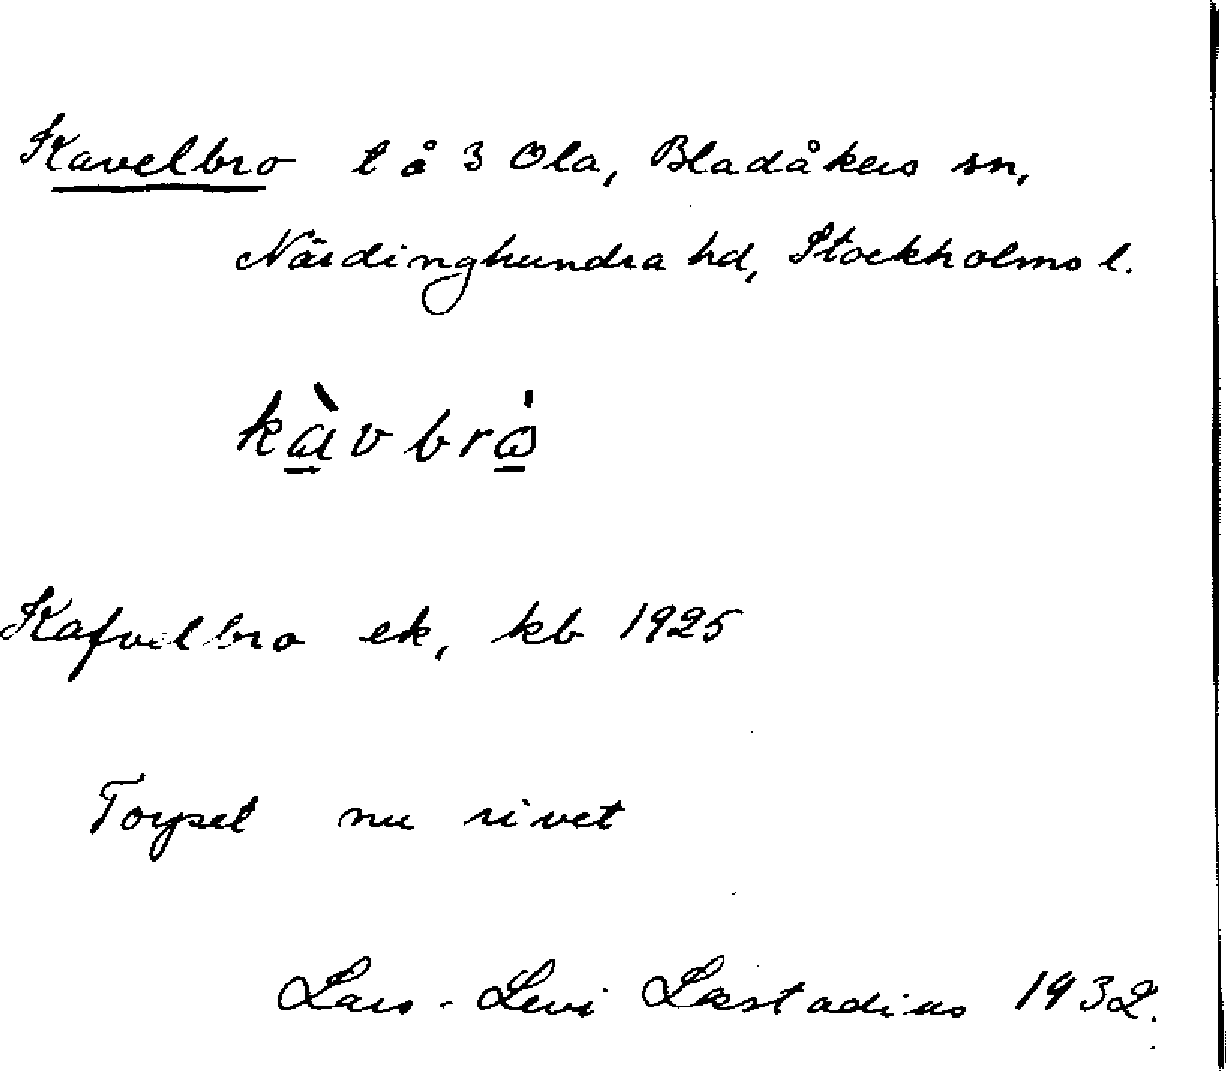 Kavelbro t å 3 Ola, Bladåkers sn,
Närdinghundra hd, Stockholms l.
kàvbrò
Kafvelbro ek, kb 1925
Torpet nu rivet
Lars-Levi Læstadius 1932.